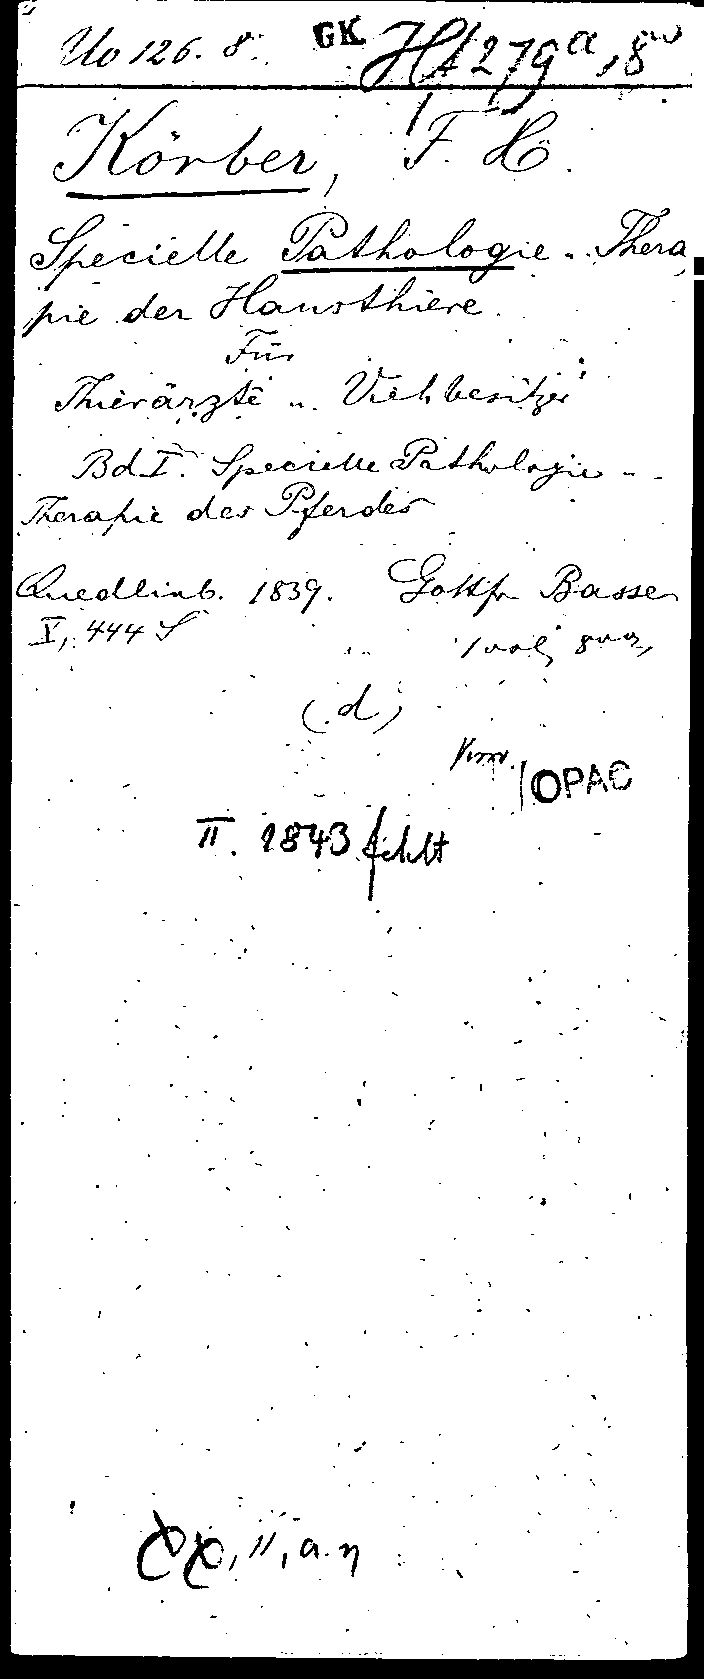 Uo 126. 8. GK 279a, 8vo
Körber, F. H.
Specielle Pathologie u. Thera
pie der Hausthiere.
Für
Thierärzte u. Viehbesitzer
Bd I. Specielle Pathologie u.
Therapie des Pferdes
Quedlinb. 1839. Gottfr Basse
X, 444 S 1 vol, 8vo,
(d)
OPAC
II. 1843 fehlt